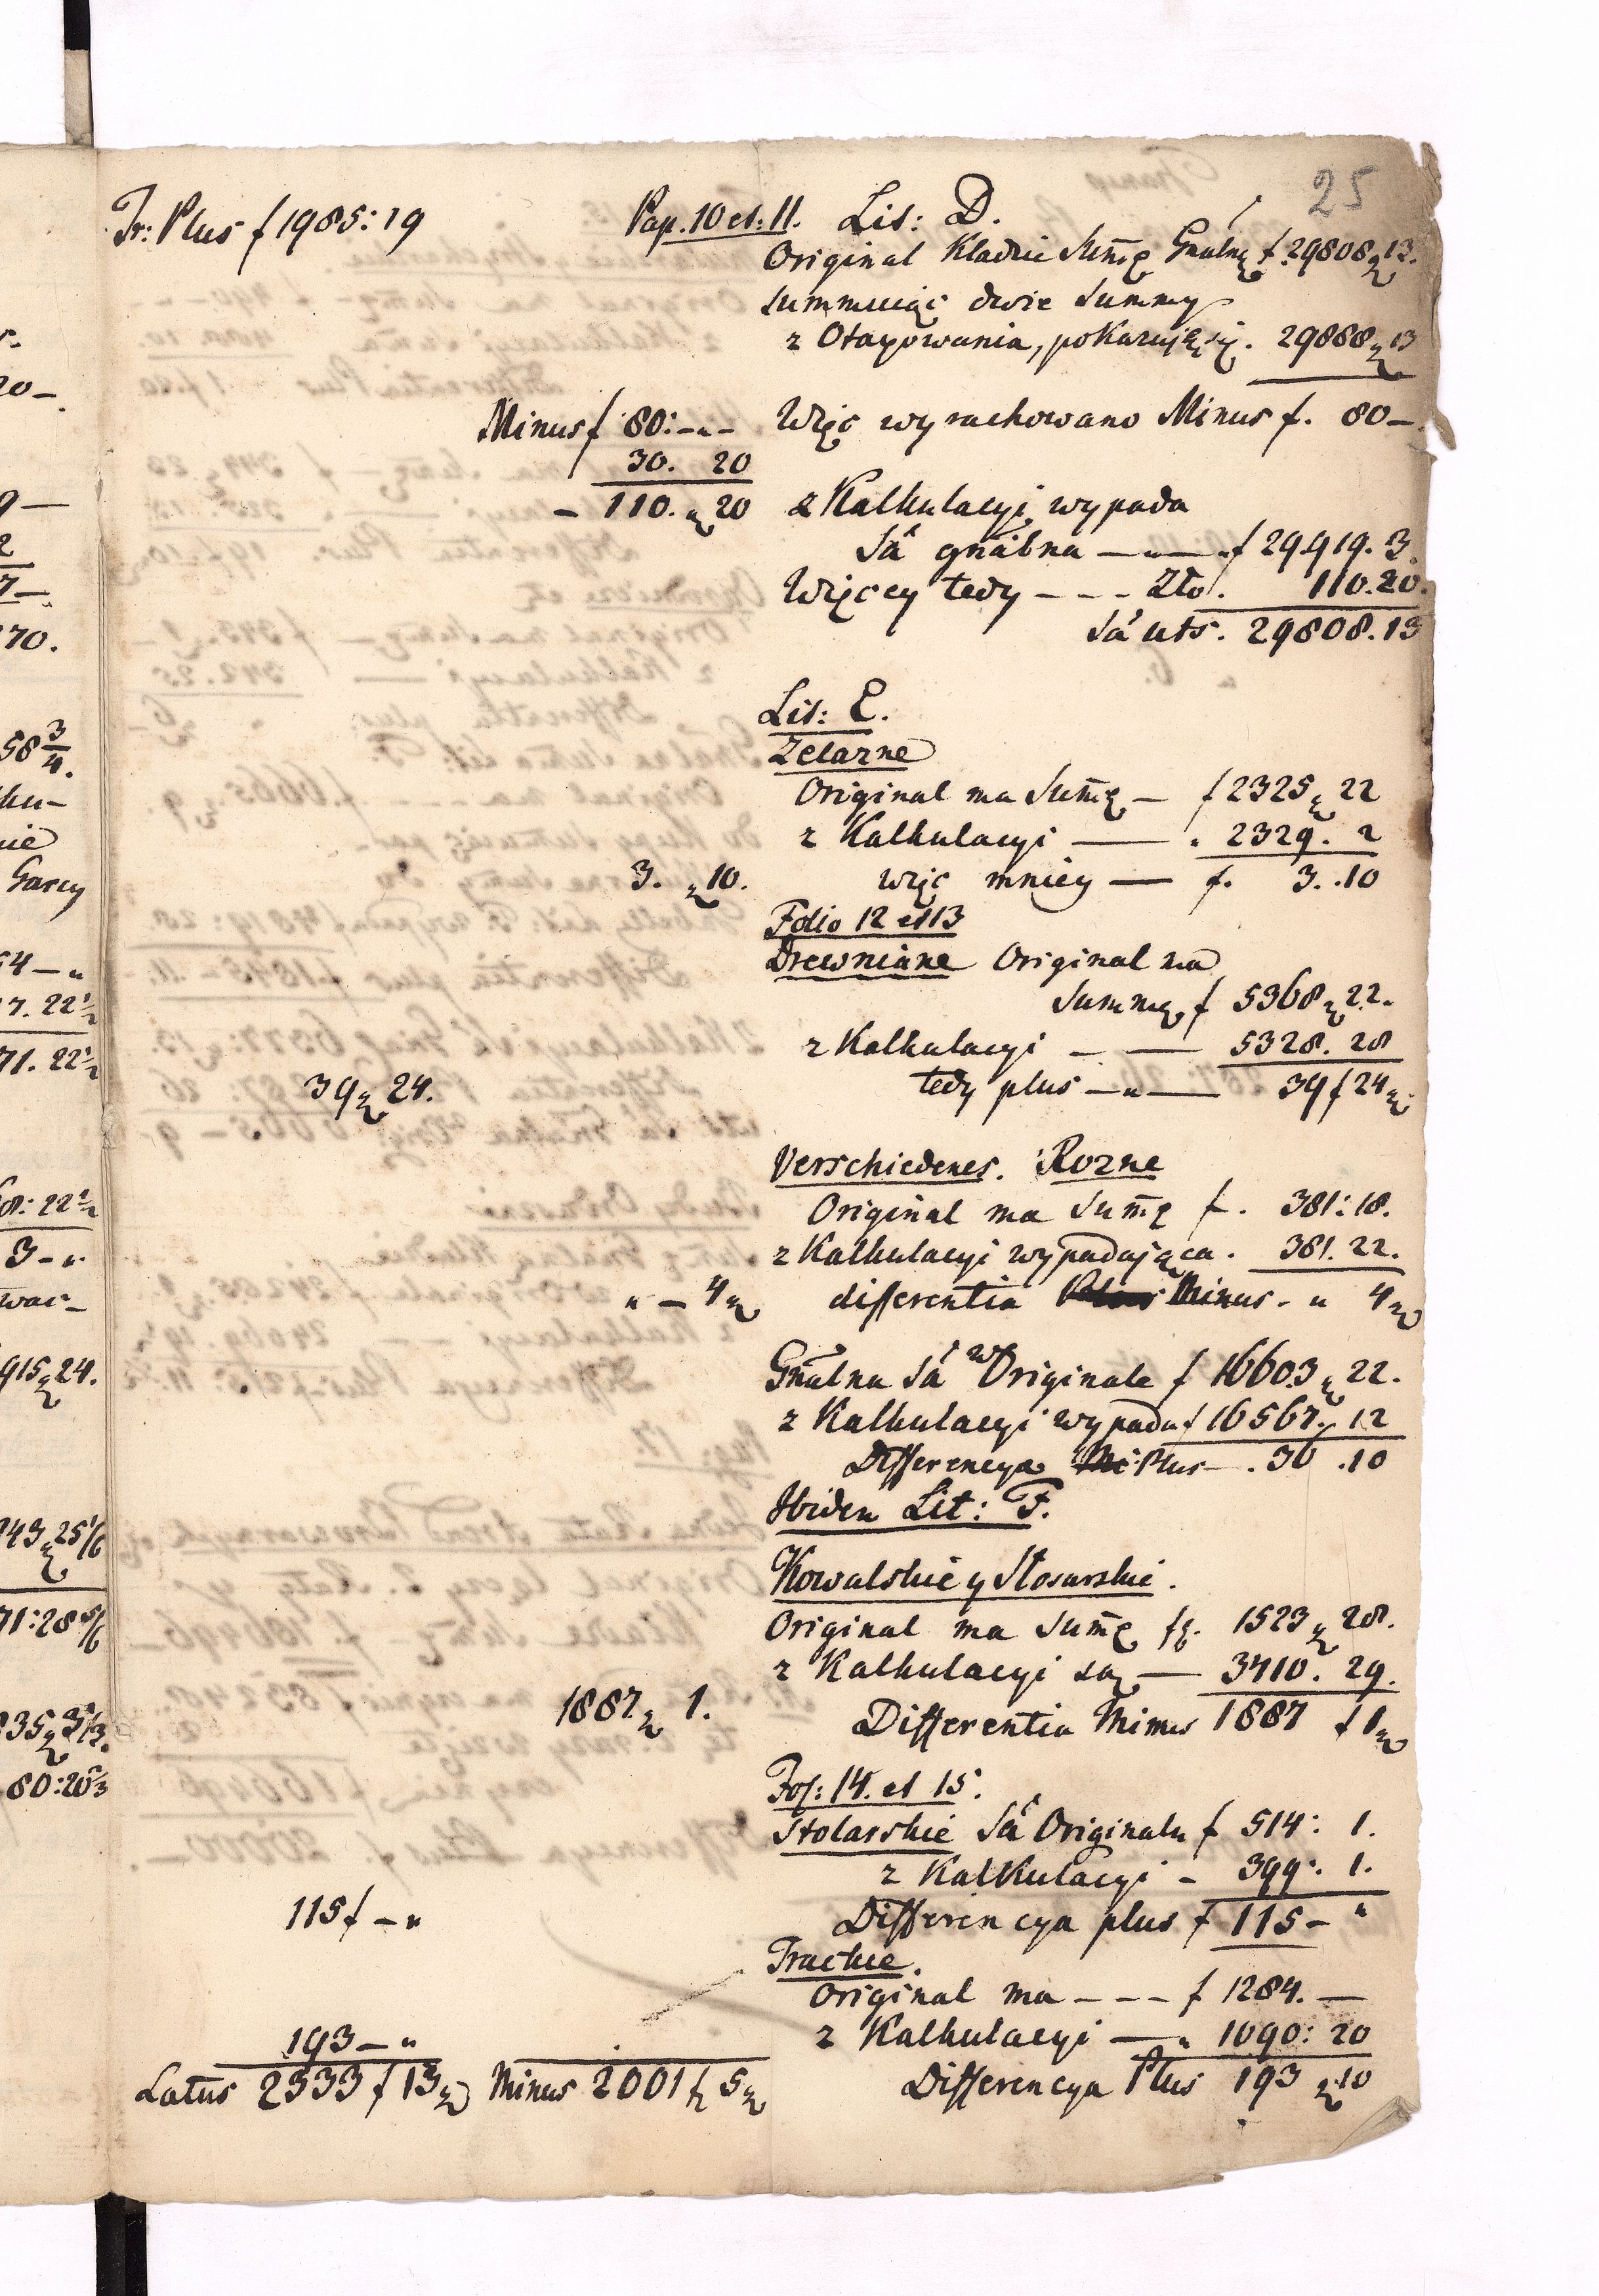 25
Tr: Plus f 1985: 19
Pag. 10 et: 11. Lit: D.
Original Kladzie Sum̄ę Gnalnę f. 29808 13.
summuiąc dwie summy
z Otaxowania, pokazuię się. 29888 13
Więc wyrachowano Minus f. 80 —
Minus f 80: — „ —
30. 20
— 110. „ 20
z Kalkulacyi wypada
Sa gnalna — „ — f 29919. 3.
Więcey tedy — — — Zło. 110. 20.
Sa uts. 29808. 13
Lit: E.
Zelazne
Original ma Sum̄ę — f 2325 22
z Kalkulacyi — . 2329. 2
więc mniey — f. 3. . 10
3. 10.
Folio 12 et 13
Drewniane Original ma
Summę f 5368 22.
z Kalkulacyi — — 5328. 28
tedy plus — „ — 39 f 24
39 24.
Verschiedenes. Rozne
Original ma Sum̄ę f. 381: 18.
z Kalkulacyi wypadaiąca. 381. 22.
differentia Plus Minus - „ 4
„ — 4
Gnalna Sa w Originale f 16603 22.
z Kalkulacyi wypada f 16567. 12
Differencya Mi Plus — . 36 . 10
Ibidem Lit: F.
Kowalskie y Slosarskie.
Original ma Sum̄ę f. 1523 28.
z Kalkulacyi są — 3410. 29.
Differentia Minus 1887 f 1
1887 1.
Fol: 14. et 15.
Stolarskie Sa Originalu f 514: 1.
z Kalkulacyi - 399: 1.
Differencya plus f 115 — „
115 f — „
Trackie.
Original ma — — — f 1284. —
z Kalkulacyi — „ 1090: 20
Differencya Plus 193 10
193 — „
Latus 2333 f 13 Minus 2001 f 5
r.
20 —
9 —
2
7 —
70.
58 3/4.
ku-
nie
Garcy
54 — „
7. 22 1/2
71. 22 1/2
8: 22 1/2
3 - „
war-
915 24.
243 25 1/6
71: 28 5/6
80: 20